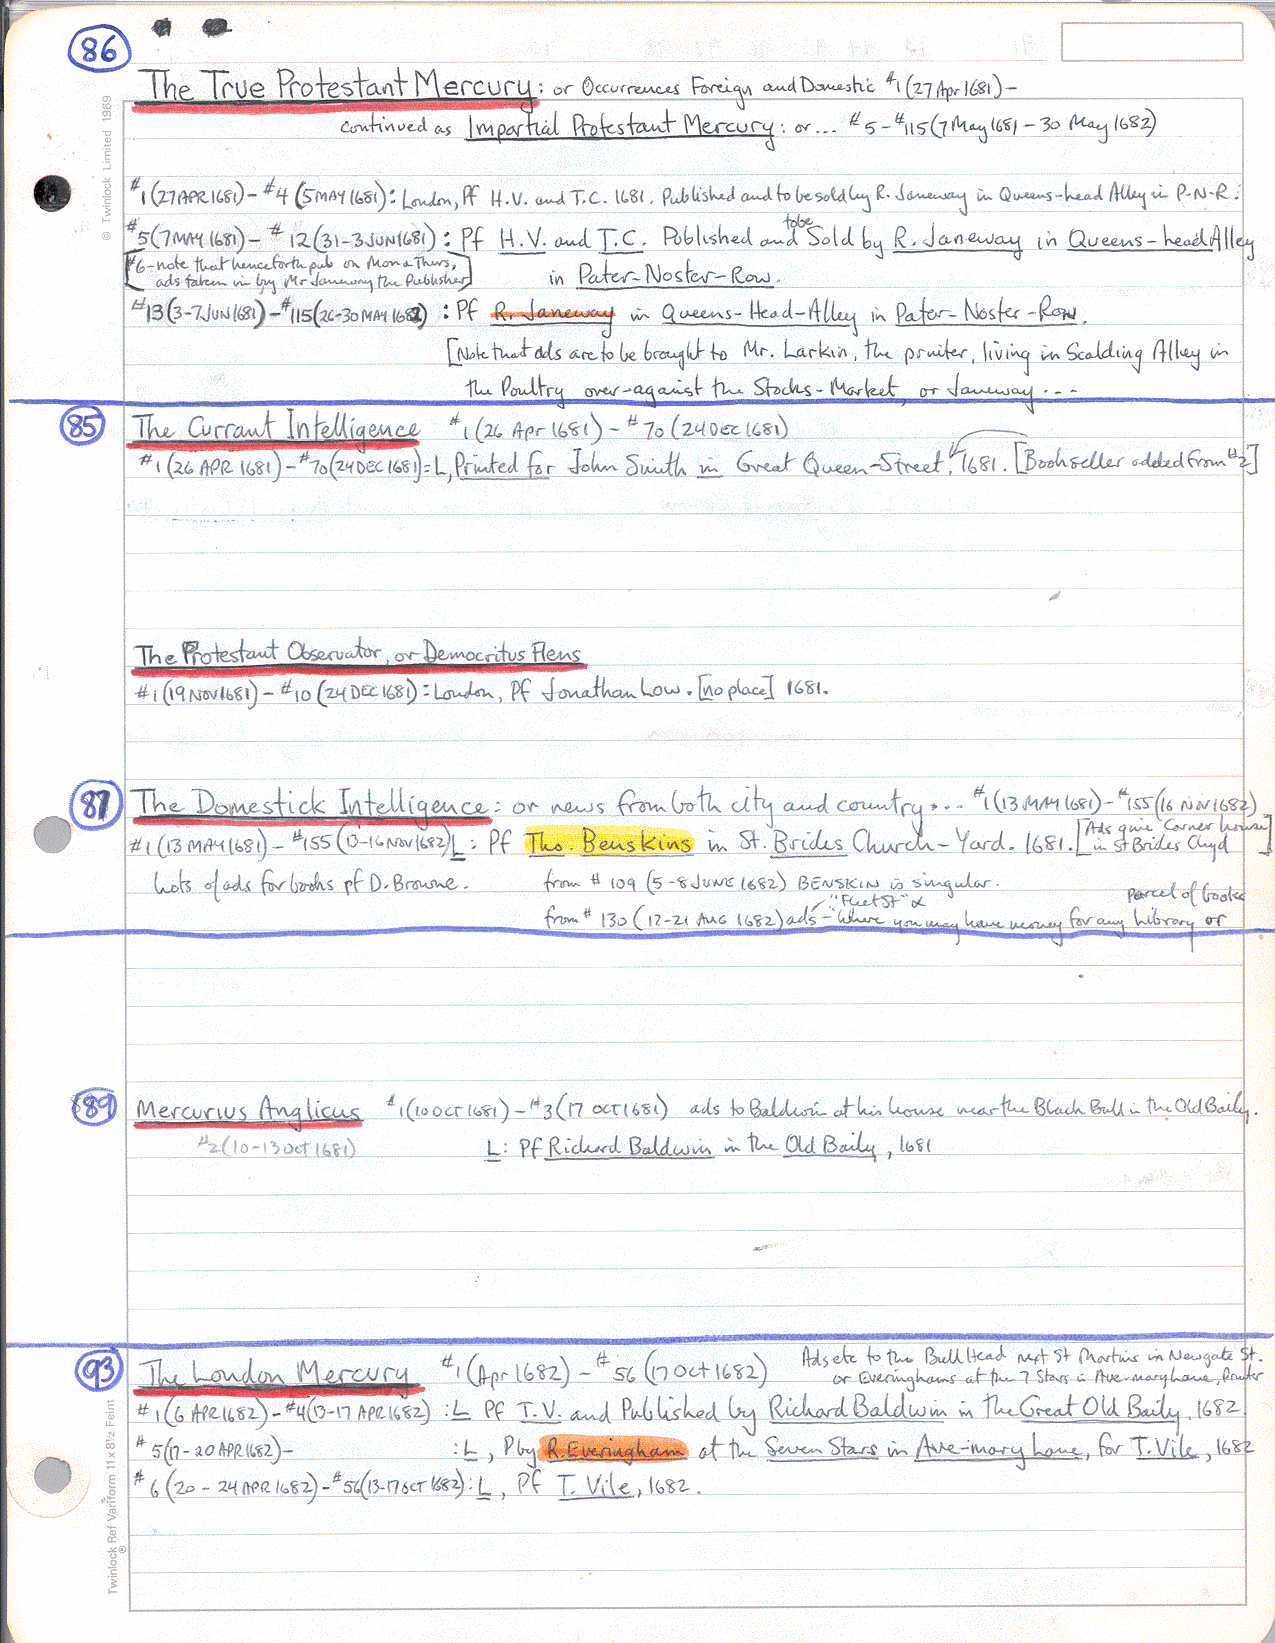 86
The True Protestant Mercury: or Occurrences Foreign and Domestic #1 (27 Apr 1681) –
continued as Impartial Protestant Mercury: or... #5 – #115 (7 May 1681 – 30 May 1682)
#1 (27 APR 1681) – #4 (5 MAY 1681): London, Pf H.V. and T.C. 1681. Published and to be sold by R. Janeway in Queens-head Alley in P-N-R:
#5 (7 MAY 1681) – #12 (31–3 JUN 1681): Pf H.V. and T.C. Published and to be Sold by R. Janeway in Queens-head Alley
[#6 – note that henceforth pub on Mon & Thurs,
ads taken in by Mr Janeway the Publisher] in Pater-Noster-Row.
#13 (3–7 JUN 1681) – #115 (26–30 MAY 1682) : Pf R. Janeway in Queens-Head-Alley in Pater-Noster-Row.
[Note that ads are to be brought to Mr. Larkin, the printer, living in Scalding Alley in
the Poultry over-against the Stocks-Market, or Janeway ...
85 The Currant Intelligence #1 (26 Apr 1681) – #70 (24 DEC 1681)
#1 (26 APR 1681) – #70 (24 DEC 1681): L, Printed for John Smith in Great Queen-Street, 1681. [Bookseller added from #2]
The Protestant Observator, or Democritus Flens
#1 (19 NOV 1681) – #10 (24 DEC 1681): London, Pf Jonathan Low. [no place] 1681.
87 The Domestick Intelligence: or news from both city and country... #1 (13 MAY 1681) – #155 (16 NOV 1682)
#1 (13 MAY 1681) – #155 (13–16 NOV 1682) L: Pf Tho. Benskins in St. Brides Church-Yard. 1681. [Ads give 'Corner house in St Brides Chyd]
Lots of ads for books pf D. Browne. from #109 (5–8 JUNE 1682) BENSKIN is singular.
from #130 (17–21 AUG 1682) ads – "Fleet St" & "Where you may have money for any Library or parcel of books
89 Mercurius Anglicus #1 (10 OCT 1681) – #3 (17 OCT 1681) ads to Baldwin at his house near the Black Bull in the Old Baily.
#2 (10–13 Oct 1681) L: Pf Richard Baldwin in the Old Baily, 1681
93 The London Mercury #1 (Apr 1682) – #56 (17 Oct 1682) Ads etc to the Bull Head next St Martins in Newgate St.
or Everinghams at the 7 Stars in Ave-mary Lane, Printer
#1 (6 APR 1682) – #4 (13–17 APR 1682) : L Pf T.V. and Published by Richard Baldwin in the Great Old Baily, 1682
#5 (17–20 APR 1682) – : L, P by R. Everingham at the Seven Stars in Ave-mary Lane, for T. Vile, 1682
#6 (20–24 APR 1682) – #56 (13–17 OCT 1682): L, Pf T. Vile, 1682.
© Twinlock Limited 1969
Twinlock Ref Variform 11 x 8½ Feint